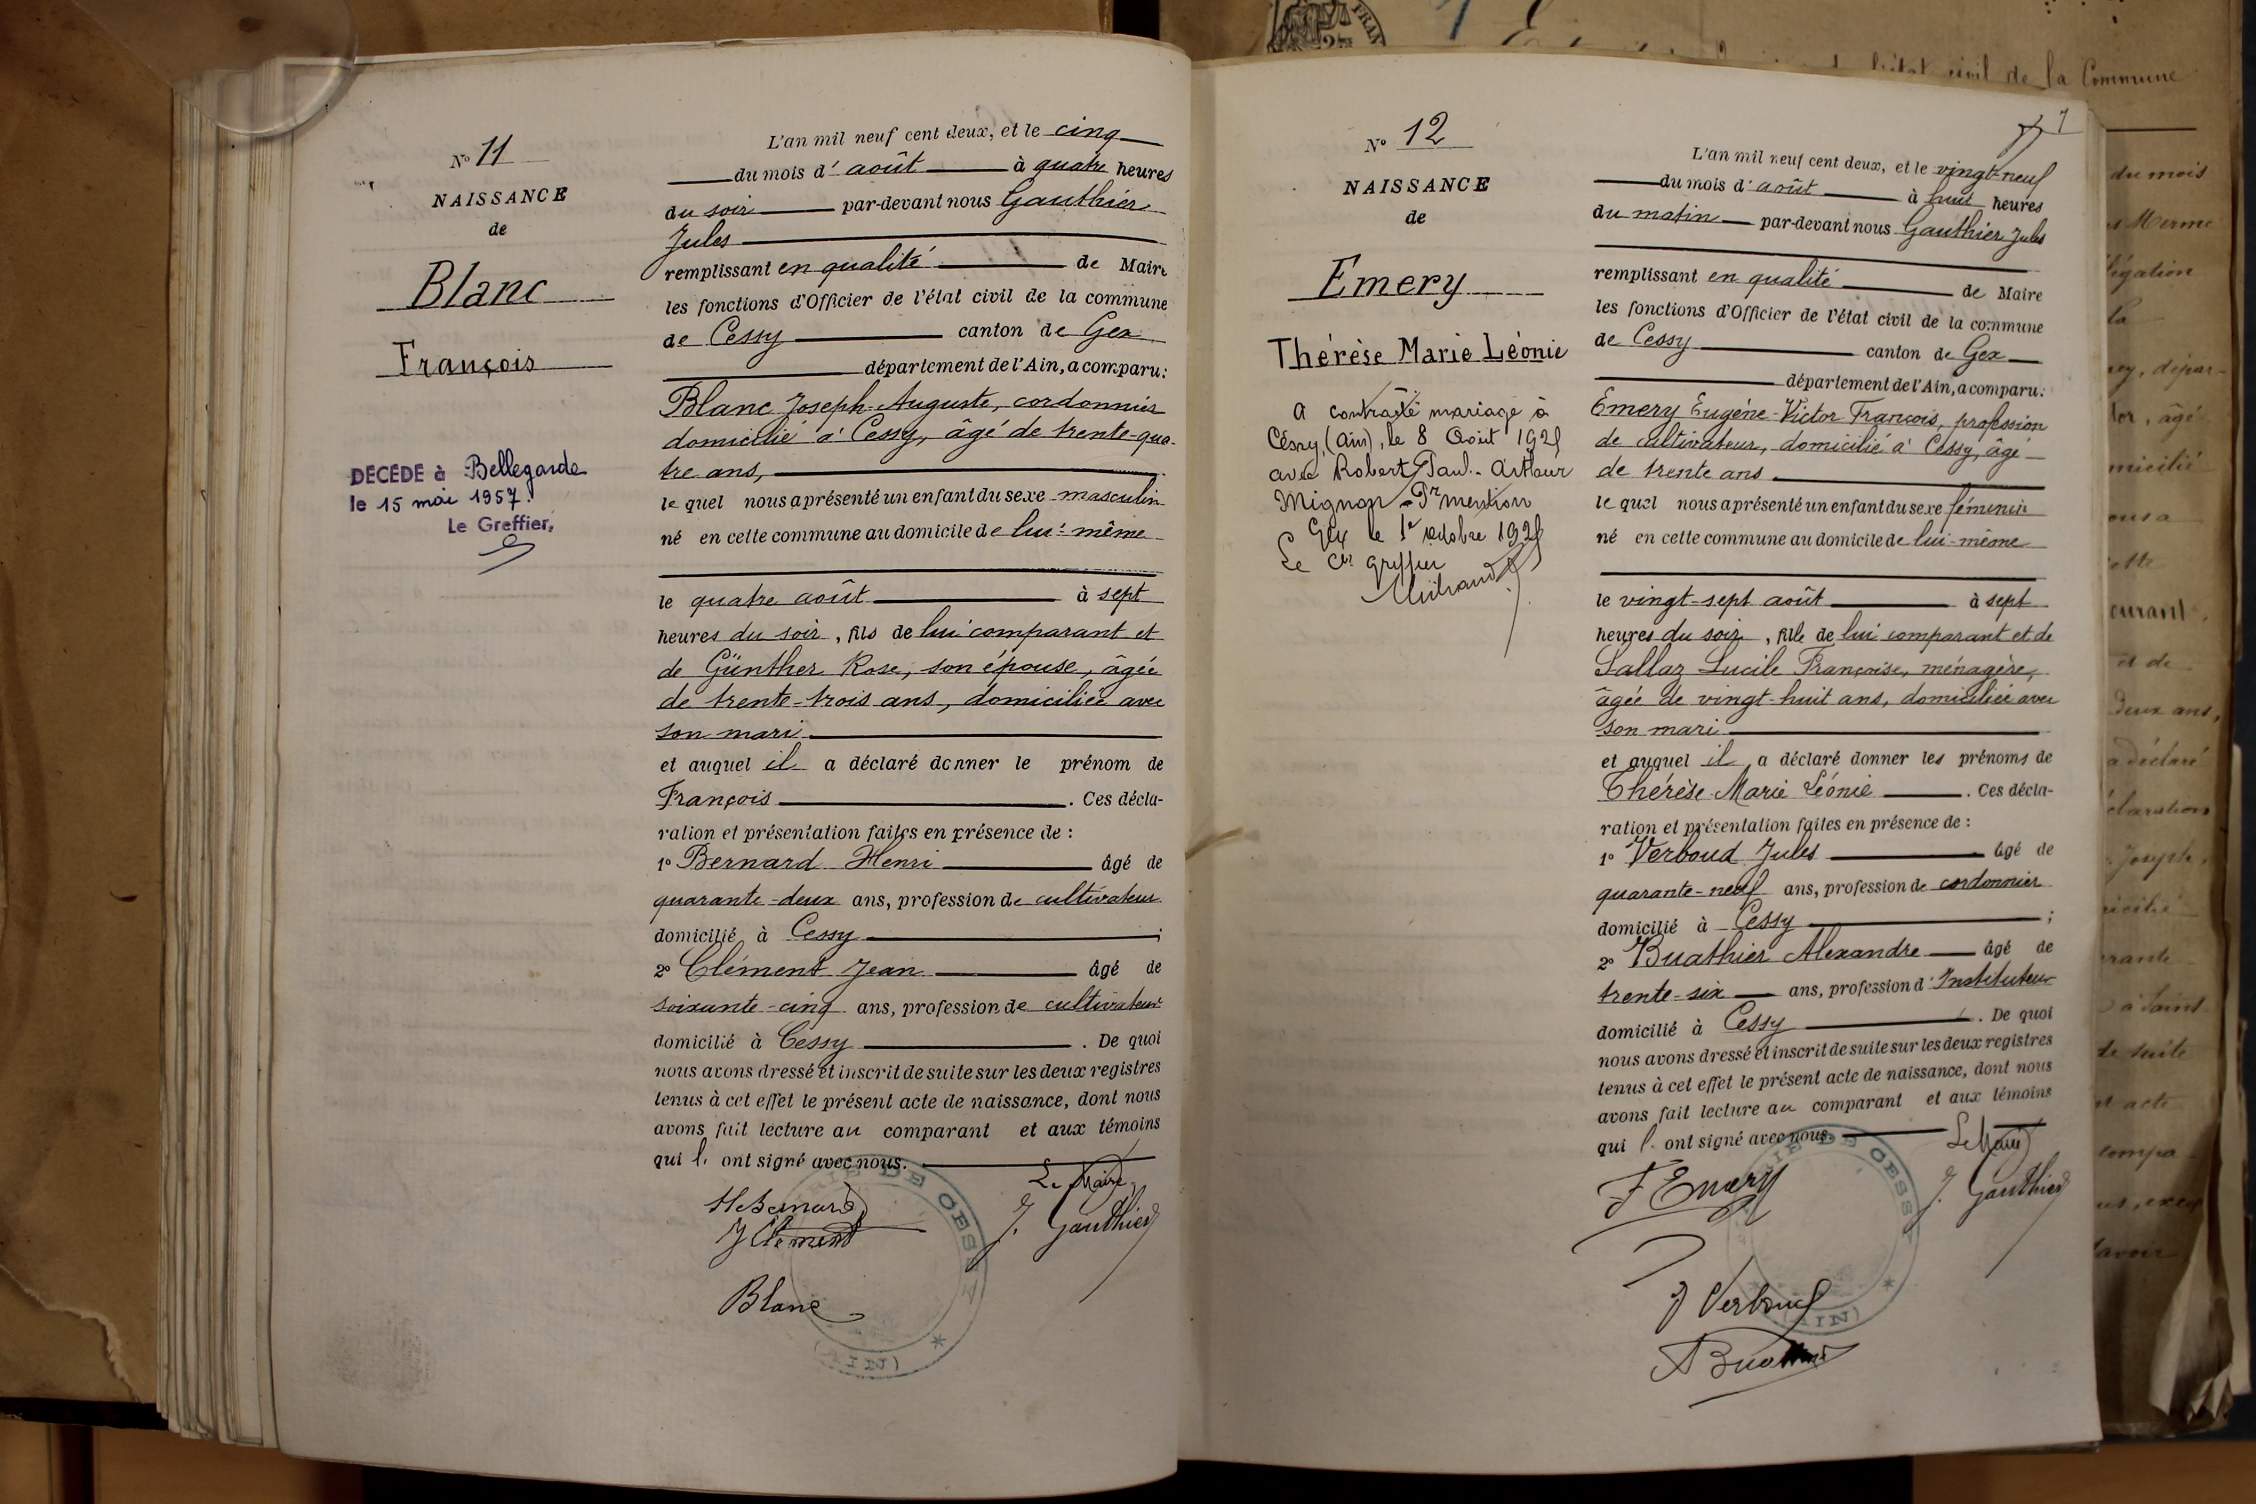 N° 11
NAISSANCE
de
Blanc
François
DÉCÉDÉ à Bellegarde
le 15 mai 1957.
Le Greffier,
L'an mil neuf cent deux, et le cinq
du mois d' août à quatre heures
du soir par-devant nous Gauthier
Jules
remplissant en qualité de Maire
les fonctions d'Officier de l'état civil de la commune
de Cessy canton de Gex
département de l'Ain, a comparu:
Blanc Joseph-Auguste, cordonnier
domicilié à Cessy, âgé de trente-qua-
tre ans,
le quel nous a présenté un enfant du sexe masculin
né en cette commune au domicile de lui-même
le quatre août à sept
heures du soir, fils de lui comparant et
de Günther Rose, son épouse, âgée
de trente-trois ans, domiciliée avec
son mari
et auquel il a déclaré donner le prénom de
François. Ces décla-
ration et présentation faites en présence de :
1° Bernard Henri âgé de
quarante-deux ans, profession de cultivateur
domicilié à Cessy ;
2° Clément Jean âgé de
soixante-cinq ans, profession de cultivateur
domicilié à Cessy. De quoi
nous avons dressé et inscrit de suite sur les deux registres
tenus à cet effet le présent acte de naissance, dont nous
avons fait lecture au comparant et aux témoins
qui l' ont signé avec nous.
Le Maire,
H Bernard
J Clément
J. Gauthier
Blanc
MAIRIE DE CESSY
* (AIN)
7
N° 12
NAISSANCE
de
Emery
Thérèse Marie Léonie
a contracté mariage à
Cessy (Ain), le 8 Août 1925
avec Robert Paul-Arthur
Mignon - Pr mention
Gex le 1er octobre 1925
Le Cis greffier
L'an mil neuf cent deux, et le vingt-neuf
du mois d' août à huit heures
du matin par-devant nous Gauthier Jules
remplissant en qualité de Maire
les fonctions d'Officier de l'état civil de la commune
de Cessy canton de Gex
département de l'Ain, a comparu:
Emery Eugène-Victor François, profession
de cultivateur, domicilié à Cessy, âgé
de trente ans
le quel nous a présenté un enfant du sexe féminin
né en cette commune au domicile de lui-même
le vingt-sept août à sept
heures du soir, fille de lui comparant et de
Sallaz Lucile Françoise, ménagère,
âgée de vingt-huit ans, domiciliée avec
son mari
et auquel il a déclaré donner les prénoms de
Thérèse-Marie Léonie. Ces décla-
ration et présentation faites en présence de :
1° Verboud Jules âgé de
quarante-neuf ans, profession de cordonnier
domicilié à Cessy ;
2° Buathier Alexandre âgé de
trente-six ans, profession d'Instituteur
domicilié à Cessy. De quoi
nous avons dressé et inscrit de suite sur les deux registres
tenus à cet effet le présent acte de naissance, dont nous
avons fait lecture au comparant et aux témoins
qui l' ont signé avec nous.
Le Maire
F Emery
J. Gauthier
J Verboud
A Buathier
MAIRIE DE CESSY
* (AIN)
l'état civil de la Commune
du mois
Merme
légation
la
dépar-
âgé
micilié
ous a
cette
courant
et de
deux ans,
a déclaré
claration
Joseph,
icilié
rante
à Saint
de suite
acte
compa
savoir